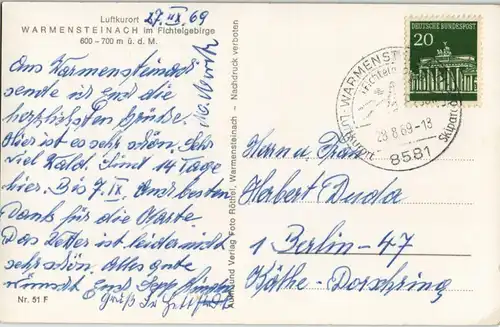 Luftkurort
WARMENSTEINACH im Fichtelgebirge
600 – 700 m ü. d. M.
69
Aus Warmensteinach
sende ich Euch die
herzlichsten Grüße.
Hier ist es sehr schön. Sehr
viel Wald. Sind 14 Tage
hier. Bis 7. IX. besten
Dank für die Karte.
Das Wetter ist leider nicht
sehr schön. Alles gute
wünscht Euch
Gruß
Nr. 51 F
Verlag Foto Röthel, Warmensteinach – Nachdruck verboten
DEUTSCHE BUNDESPOST
20
WARMENST
28.8.69-18
8581
Herrn u. Frau
Herbert Duda
1 Berlin-47
Käthe-Dorschring